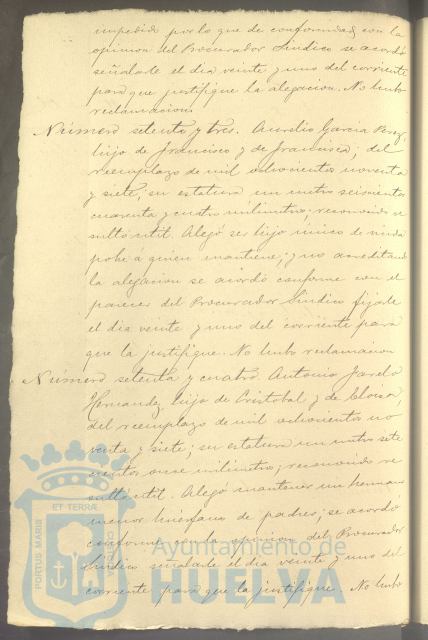 impedido por lo que de conformidad con la
opinion del Procurador Sindico se acordó
señalarle el dia veinte y uno del corriente
para que justifique la alegacion. No hubo
reclamacion.
Número setenta y tres. Aurelio Garcia Perez,
hijo de Francisco y de Francisca; del
reemplazo de mil ochocientos noventa
y siete; su estatura un metro seiscientos
cuarenta y cuatro milimetros; reconocido re
sultó util. Alegó ser hijo único de viuda
pobre a quien mantiene; y no acreditando
la alegacion se acordó conforme con el
parecer del Procurador Sindico fijarle
el dia veinte y uno del corriente para
que la justifique. No hubo reclamacion
Número setenta y cuatro. Antonio
Hernandez, hijo de Cristobal y de
del reemplazo de mil ochocientos no
venta y siete; su estatura un metro sete
cientos once milimetros; reconocido re
sultó util. Alegó mantener un hermano
menor huérfano de padres; se acordó
conforme con la opinion del Procurador
Sindico señalarle el dia veinte y uno del
corriente para que la justifique. No hubo
PORTUS MARIS ET TERRÆ CUSTODIA
Ayuntamiento de
HUELVA